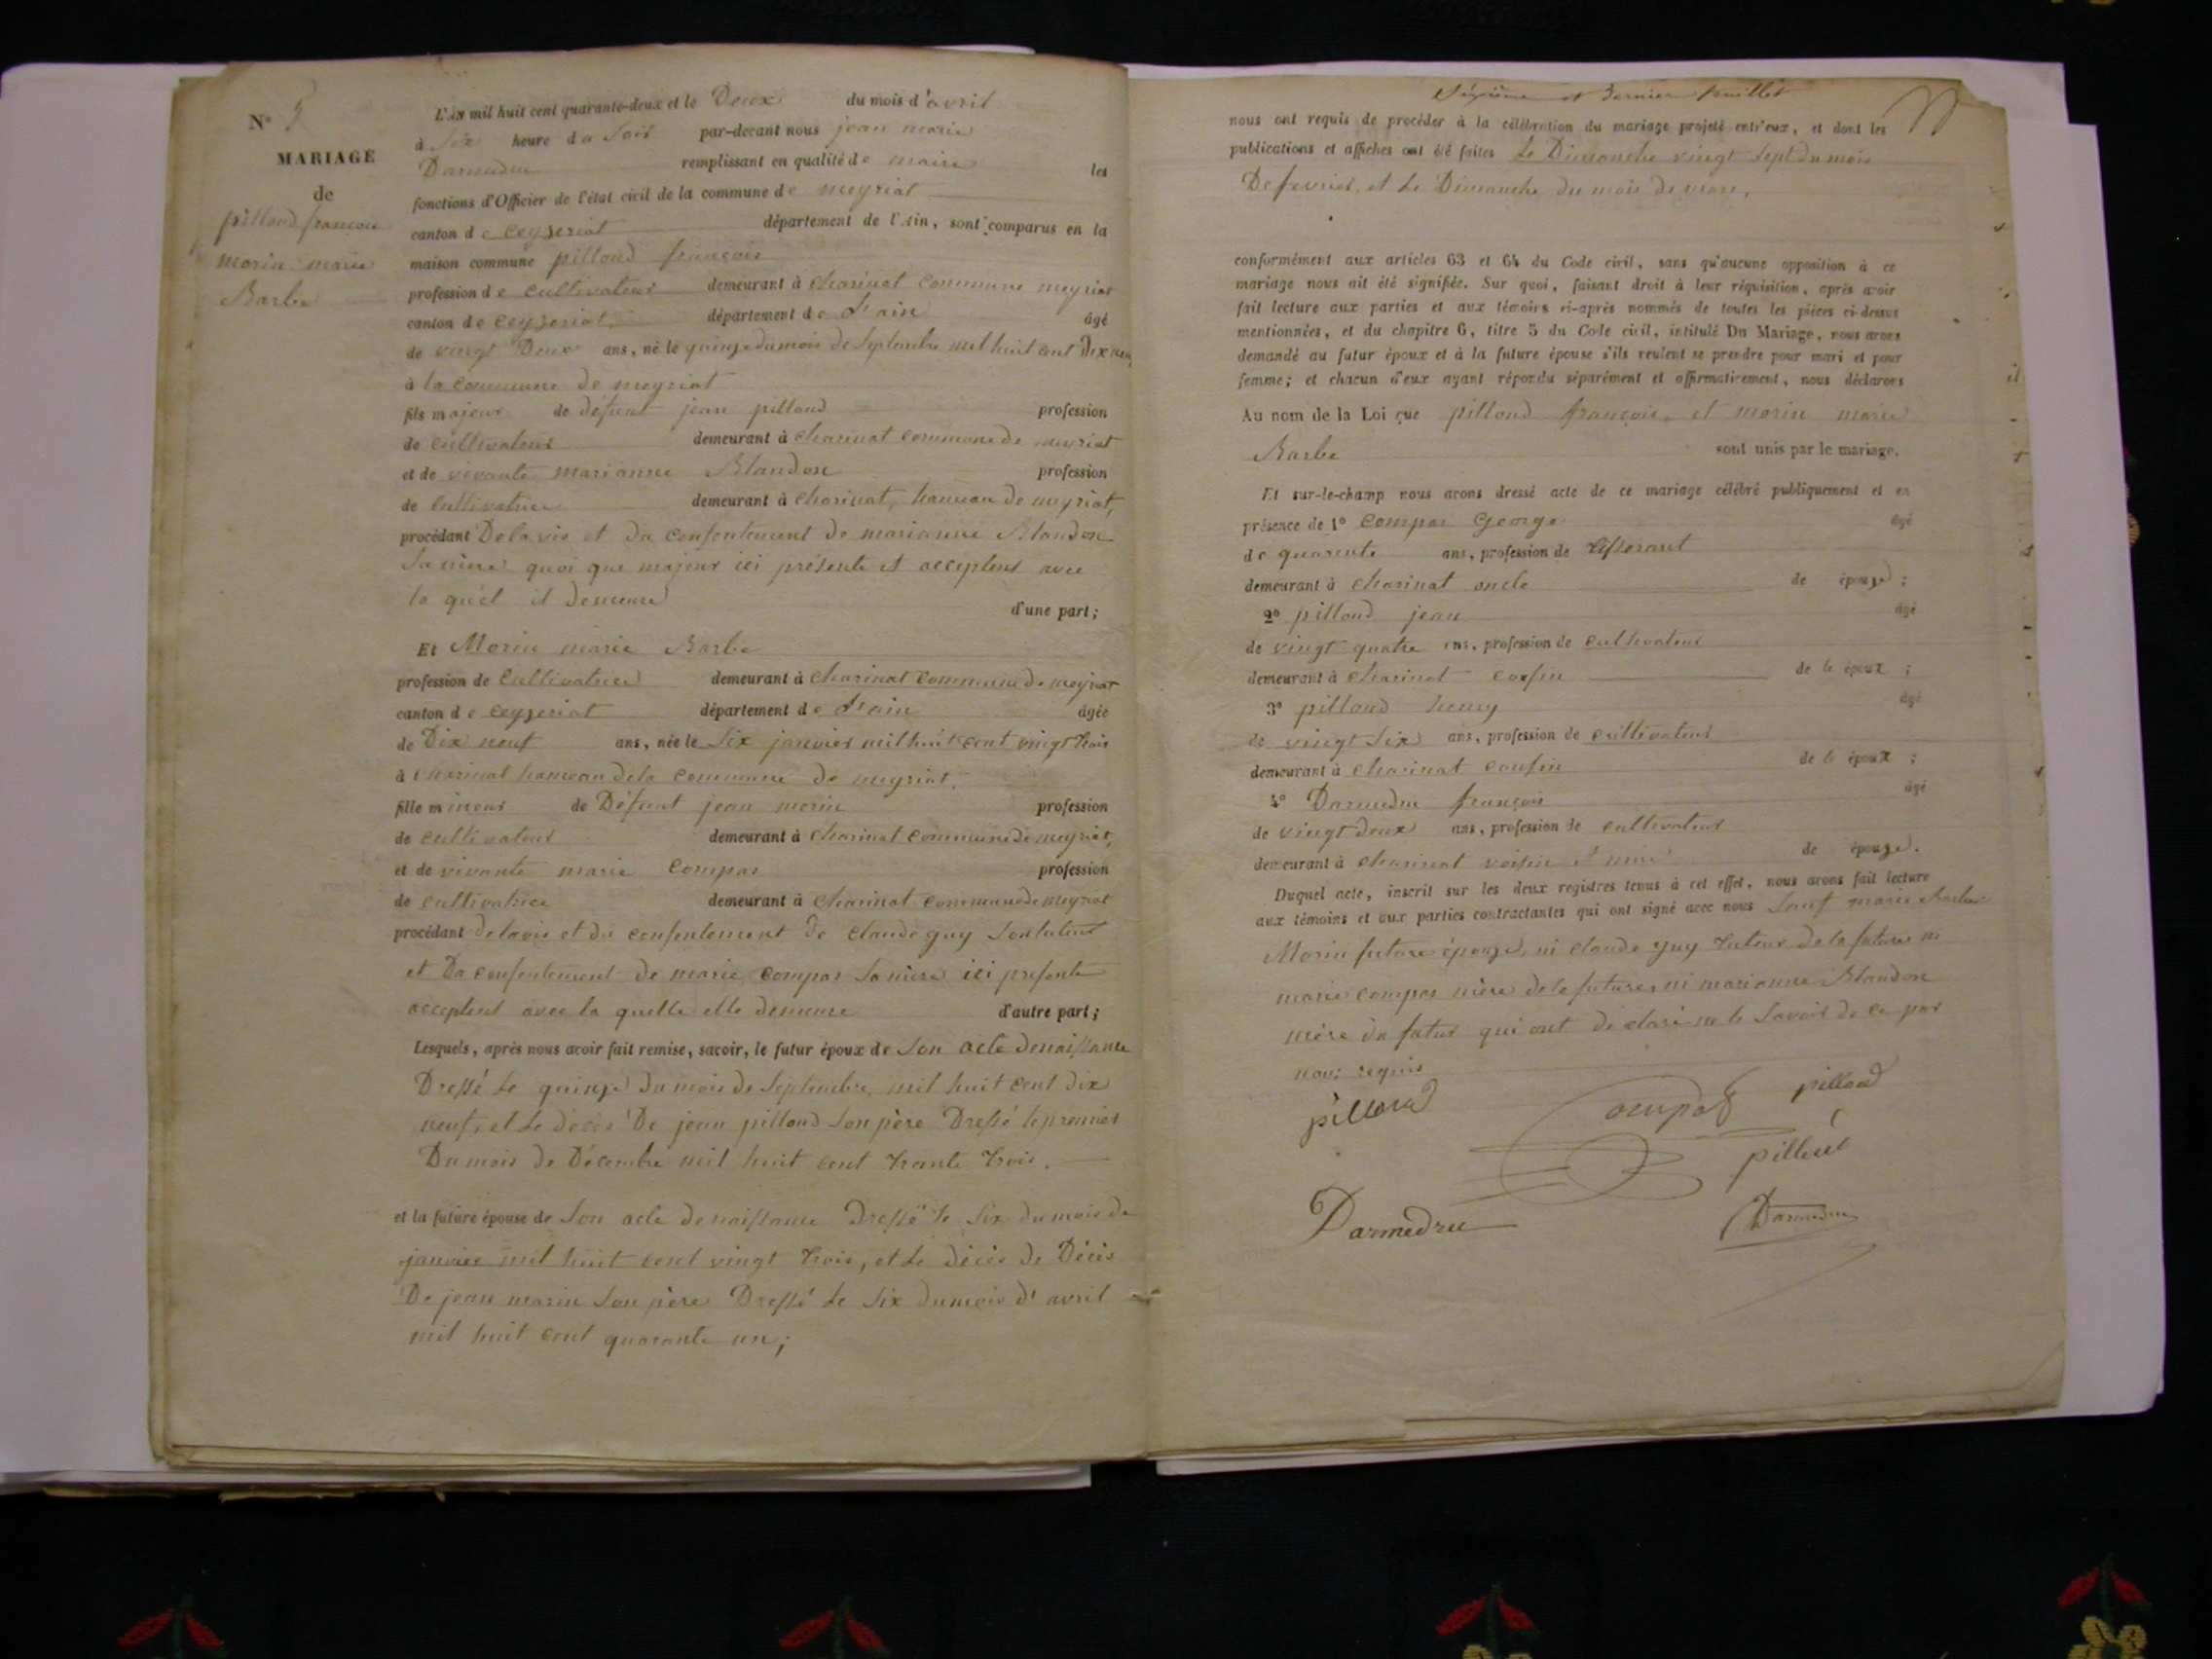 N° 5
MARIAGE
de
pilloud françois
morin marie
Barbe
L'AN mil huit cent quarante-deux et le Deux du mois d'avril
à Six heure du Soir par-devant nous jean marie
Darmedru remplissant en qualité de maire les
fonctions d'Officier de l'état civil de la commune de meyriat
canton de ceyzeriat département de l'Ain, sont comparus en la
maison commune pilloud françois
profession de cultivateur demeurant à charinat commune meyriat
canton de ceyzeriat département de l'ain âgé
de vingt Deux ans, né le quinze du mois de Septembre mil huit cent Dix neuf
à la commune de meyriat
fils majeur de défunt jean pilloud profession
de cultivateur demeurant à charinat commune de meyriat
et de vivante marianne Blandon profession
de cultivatrice demeurant à charinat, hameau de meyriat,
procédant De lavis et du consentement de marianne Blandon
Sa mère quoi que majeur ici présente et acceptent avec
la quel il demeure d'une part;
Et Morin marie Barbe
profession de cultivatrice demeurant à charinat commune de meyriat
canton de ceyzeriat département de l'ain âgée
de Dix neuf ans, née le Six janvier mil huit cent vingt trois
à charinat hameau de la commune de meyriat.
fille mineur de Défunt jean morin profession
de cultivateur demeurant à charinat commune de meyriat,
et de vivante marie compas profession
de cultivatrice demeurant à charinat commune de meyriat
procédant de lavis et du consentement de claude guy Son tuteur
et Du consentement de marie compas Sa mère ici présente
acceptent avec la quelle elle demeure d'autre part;
Lesquels, après nous avoir fait remise, savoir, le futur époux de Son acte de naissance
Dressé le quinze du mois de Septembre mil huit cent dix
neuf, et le décès De jean pilloud Son père Dressé le premier
Du mois de Décembre mil huit cent trante trois.
et la future épouse de Son acte de naissance Dressé le Six du mois de
janvier mil huit cent vingt trois, et le décès de Décès
De jean morin Son père Dressé le Six du mois d'avril
mil huit cent quarante un;
Sépième et Dernier feuillet
nous ont requis de procéder à la célébration du mariage projeté entr'eux, et dont les
publications et affiches ont été faites Le Dimanche vingt Sept du mois
De fevrier, et Le Dimanche du mois de mars.
conformément aux articles 63 et 64 du Code civil, sans qu'aucune opposition à ce
mariage nous ait été signifiée. Sur quoi, faisant droit à leur réquisition, après avoir
fait lecture aux parties et aux témoins ci-après nommés de toutes les pièces ci-dessus
mentionnées, et du chapitre 6, titre 5 du Code civil, intitulé Du Mariage, nous avons
demandé au futur époux et à la future épouse s'ils veulent se prendre pour mari et pour
femme; et chacun d'eux ayant répondu séparément et affirmativement, nous déclarons
Au nom de la Loi que pilloud françois, et morin marie
Barbe sont unis par le mariage.
Et sur-le-champ nous avons dressé acte de ce mariage célébré publiquement et en
présence de 1° compas George âgé
de quarente ans, profession de tisserant
demeurant à charinat oncle de épouze;
2° pilloud jean âgé
de vingt quatre ans, profession de cultivateur
demeurant à charinat cousin de le époux;
3° pilloud henry âgé
de vingt Six ans, profession de cultivateur
demeurant à charinat cousin de le époux;
4° Darmedru françois âgé
de vingt deux ans, profession de cultivateur
demeurant à charinat voisin de épouze.
Duquel acte, inscrit sur les deux registres tenus à cet effet, nous avons fait lecture
aux témoins et aux parties contractantes qui ont signé avec nous Sauf marie Barbe
Morin future épouze, ni claude guy tuteur de la future ni
marie compas mère de la future, ni marianne Blandon
mère du futur qui ont déclaré ne le Savoir de ce par
nous requis
pilloud pilloud
Darmedru Darmedru